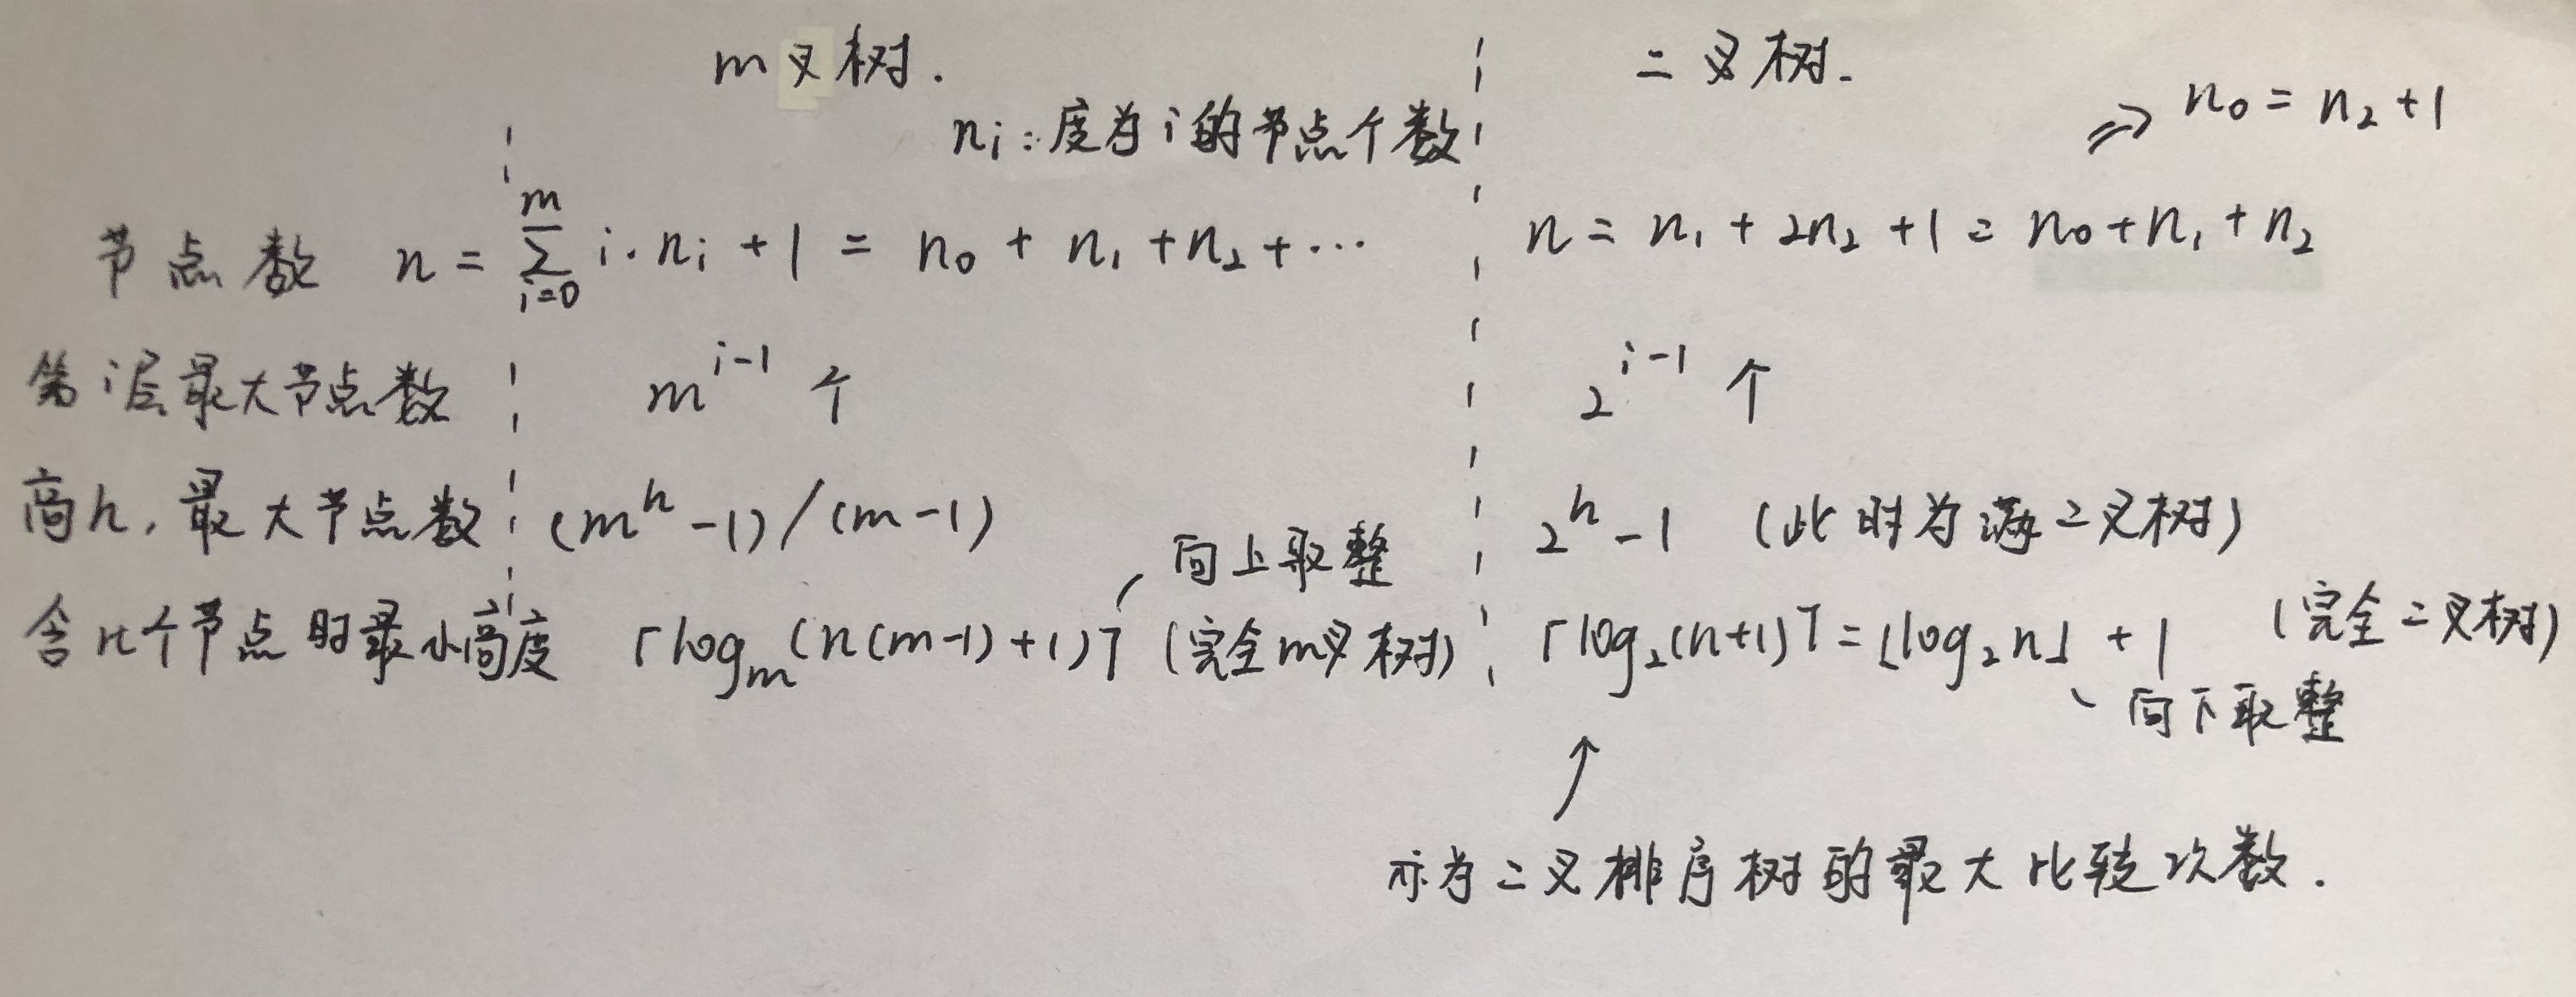 m叉树. 二叉树.
ni:度为i的节点个数 ⇒ n₀ = n₂ + 1
节点数 n = ∑_{i=0}^{m} i·nᵢ + 1 = n₀ + n₁ + n₂ + ⋯ n = n₁ + 2n₂ + 1 = n₀ + n₁ + n₂
第i层最大节点数 m^{i-1} 个 2^{i-1} 个
高h,最大节点数 (m^h - 1)/(m-1) 2^h - 1 (此时为满二叉树)
向上取整
含n个节点时最小高度 ⌈log_m(n(m-1)+1)⌉ (完全m叉树) ⌈log₂(n+1)⌉ = ⌊log₂n⌋ + 1 (完全二叉树)
向下取整
↑
亦为二叉排序树的最大比较次数.